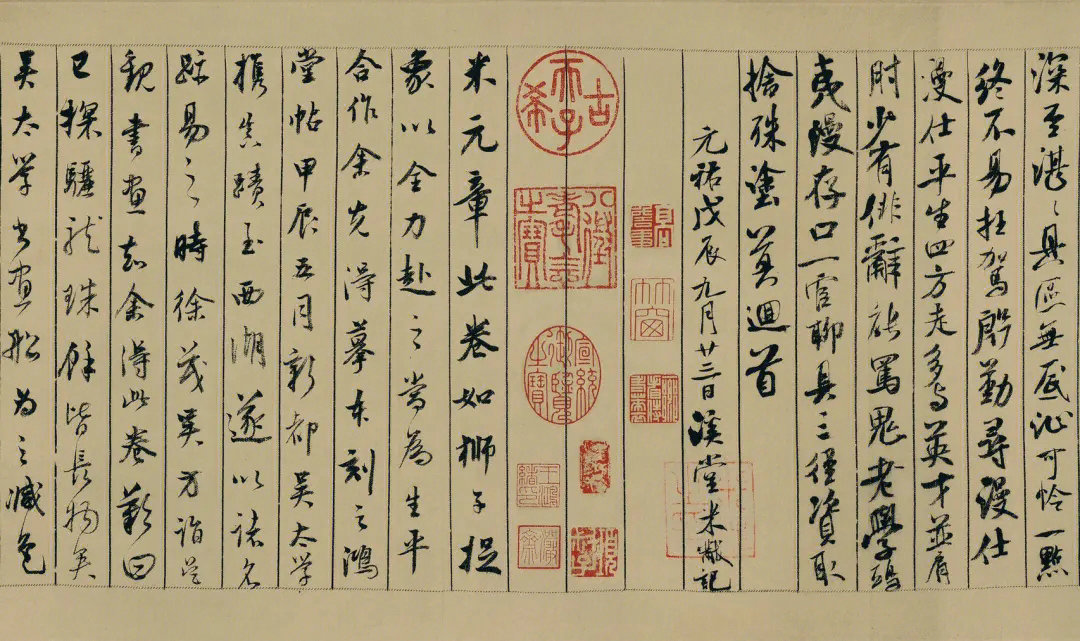 深至湛〻具區無底沚可怜一點
終不易枉駕殷勤尋漫仕
漫仕平生四方走多与英才並肩
肘少有俳辭能罵鬼老學鴟
夷漫存口一官聊具三徑資取
捨殊塗莫迴首
元祐戊辰九月廿三日溪堂米黻記
竹窗
古希天子
八徵耄念之寶
宣統御覽之寶
米元章此卷如獅子捉
象以全力赴之當為生平
合作余先得摹本刻之鴻
堂帖甲辰五月新都吳太學
攜真蹟至西湖遂以諸名
跡易之時徐茂吳方詣吳
觀書畫知余得此卷歎曰
已探驪龍珠餘皆長物矣
吳太學書畫船為之減色